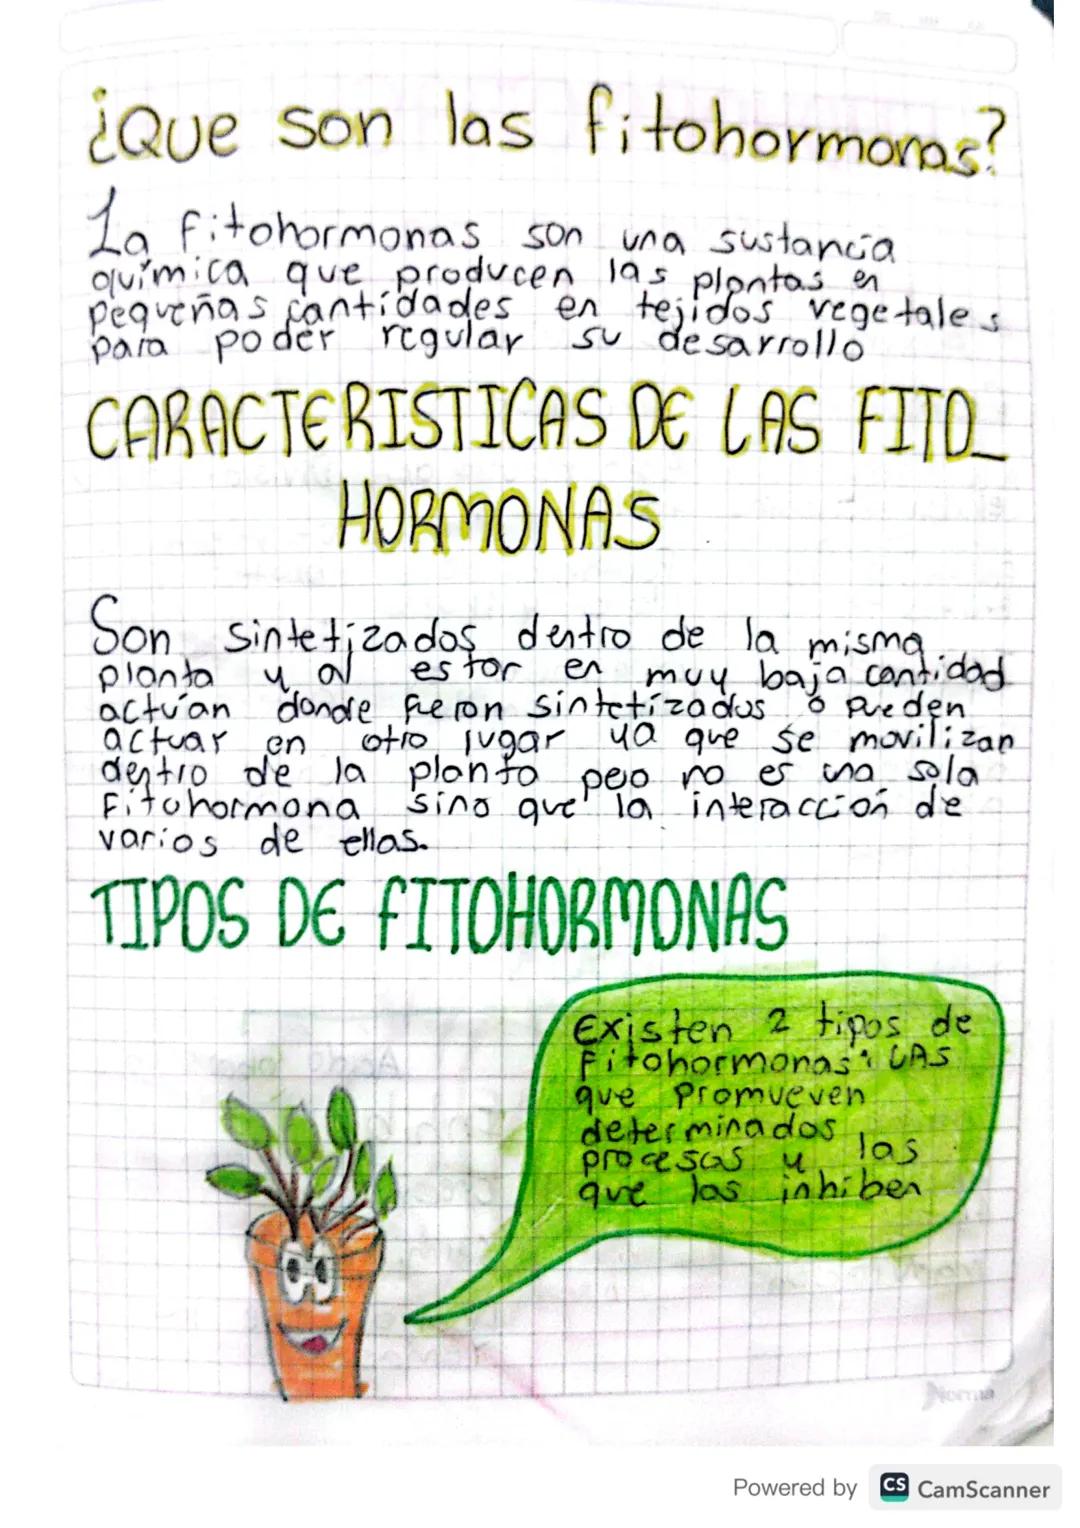 ¿Que son las fitohormonas?
La fitohormonas son una sustancia
química que producen las plantas en
pequeñas cantidades en tejidos vegetales
para poder regular su desarrollo
CARACTERISTICAS DE LAS FITO_
HORMONAS
Son sintetizados dentro de la misma
planta y al estar en muy baja cantidad
actúan donde fueron sintetizados o pueden
actuar en otro lugar ya que se movilizan
dentro de la planta pero no es una sola
Fitohormona sino que la interacción de
varios de ellas.
TIPOS DE FITOHORMONAS
Existen 2 tipos de
Fitohormonas: LAS
que Promueven
determinados
procesos y las
que los inhiben
Norma
Powered by CS CamScanner